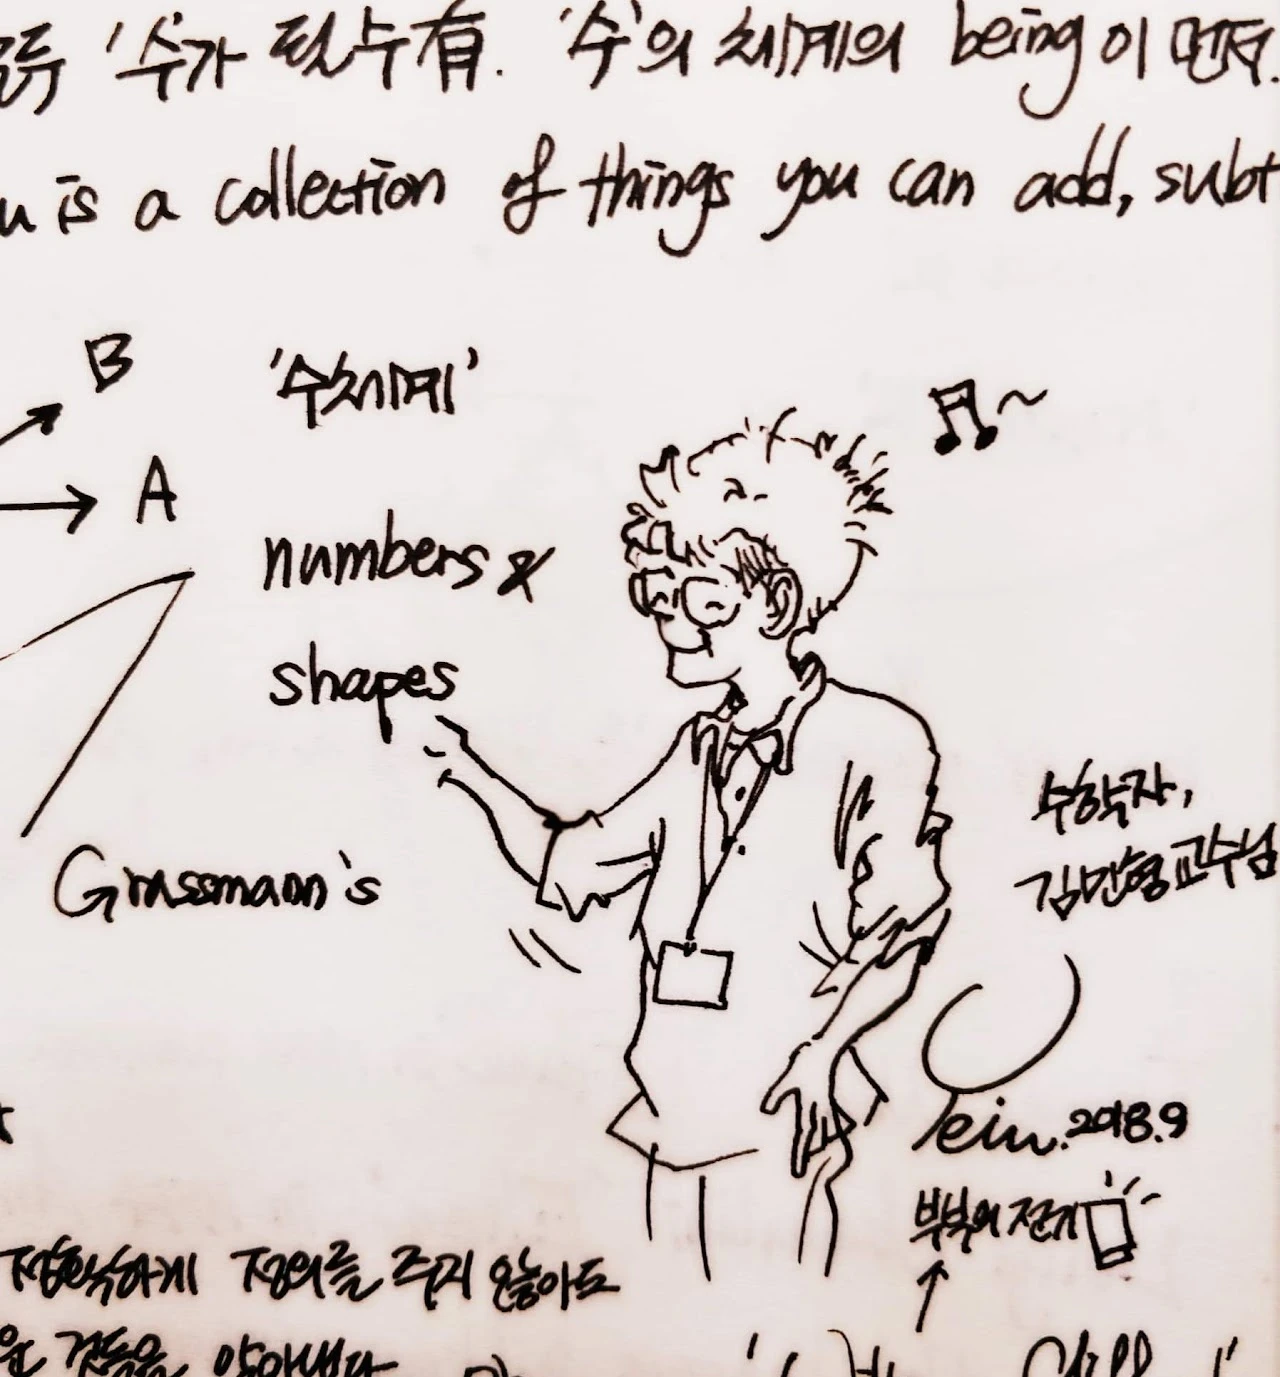 '수가 될 수 有. '수'의 체계의 being이 먼저.
is a collection of things you can add, subt
B
'수체계'
A
numbers &
shapes
Grassmann's
수학자,
김민형 교수님
2018.9
부부의 전기
정확하게 정의를 주지 않아도
것들을 알아냈다